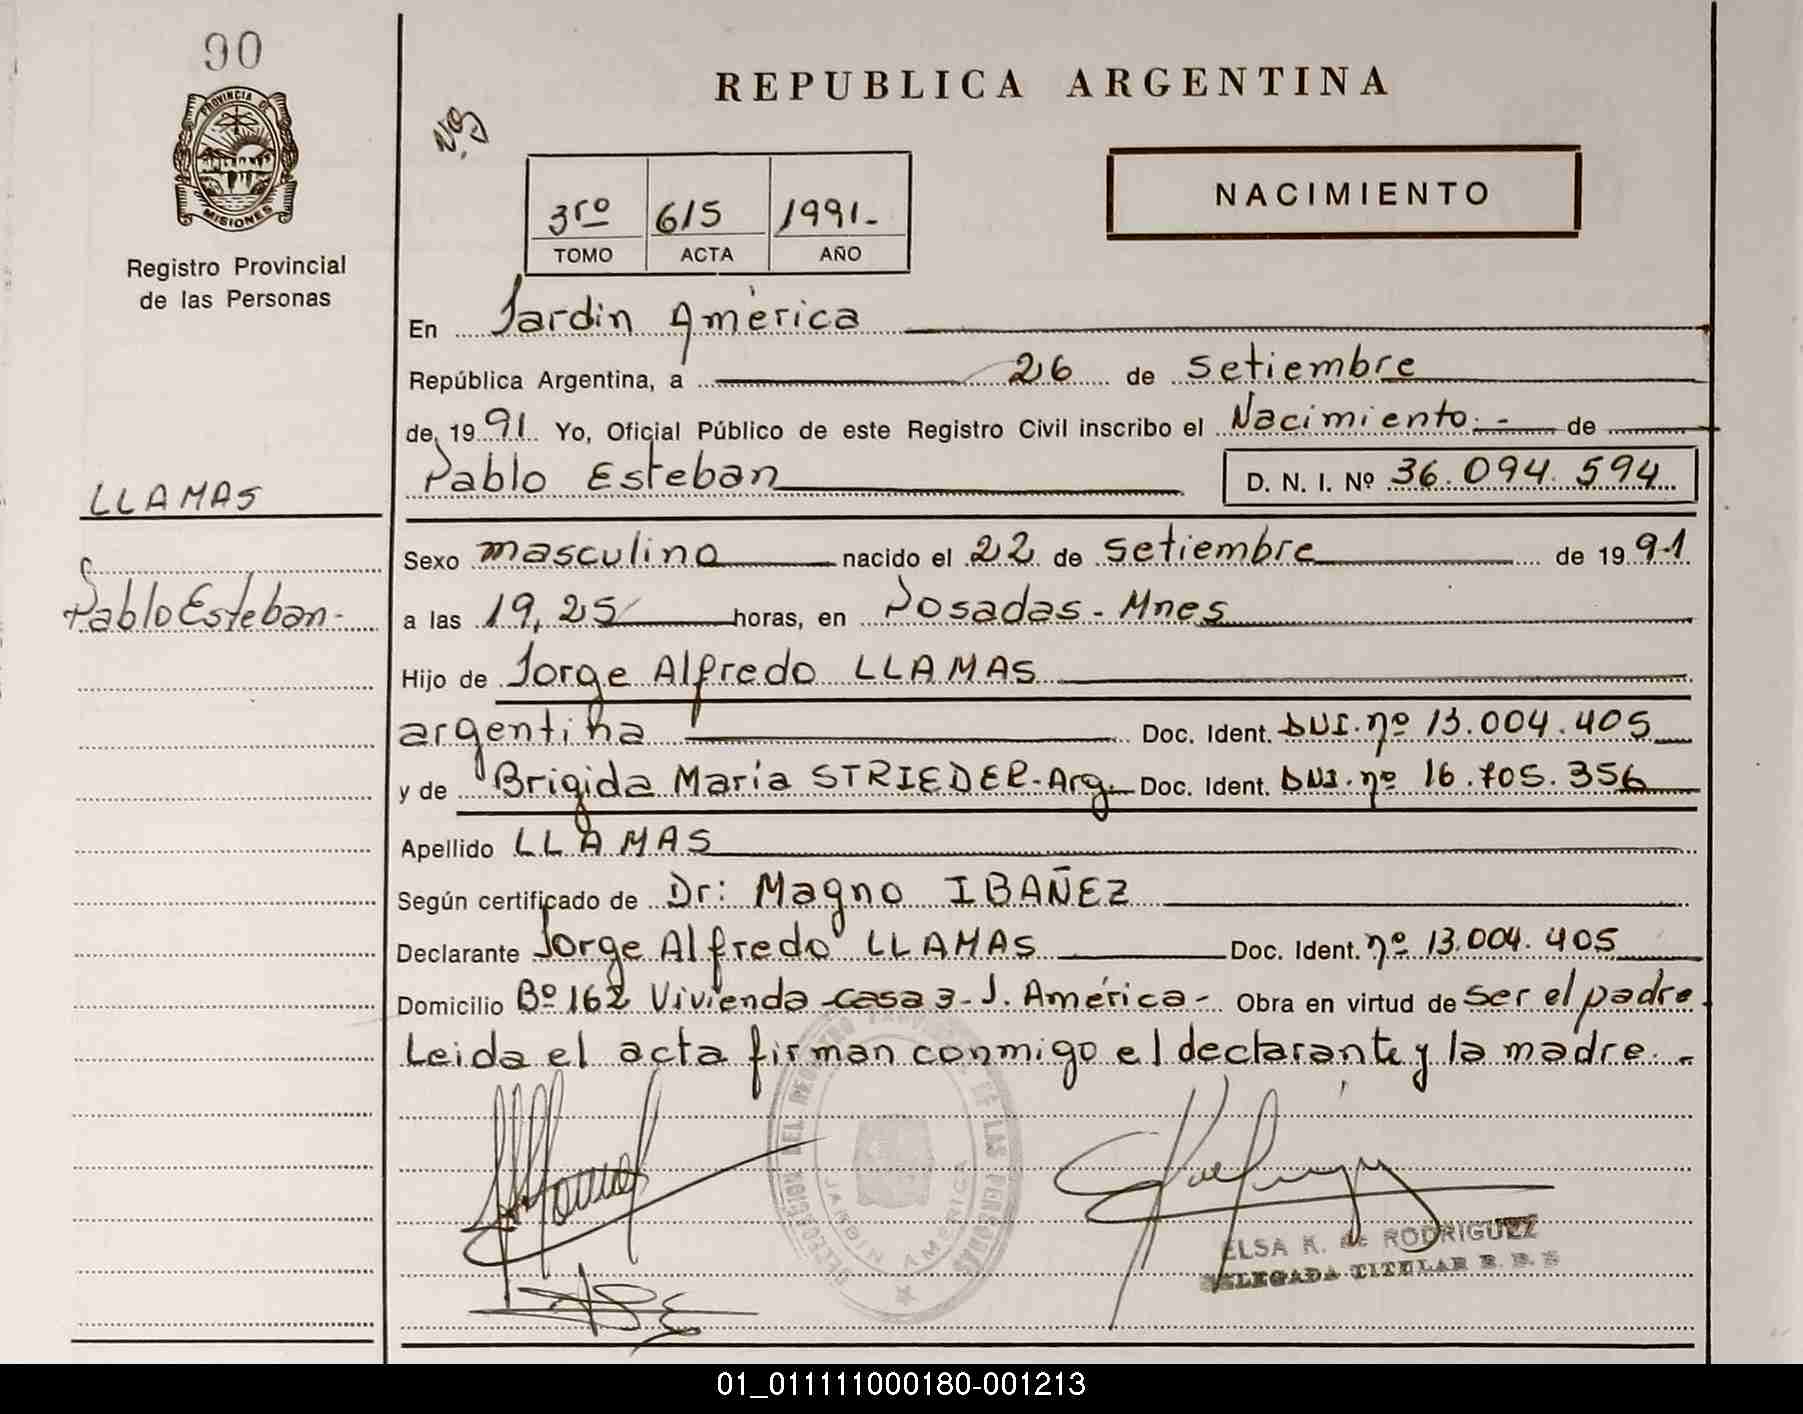 90
PROVINCIA DE
MISIONES
Registro Provincial
de las Personas
LLAMAS
Pablo Esteban-
REPUBLICA ARGENTINA
NACIMIENTO
3ro 615 1991-
TOMO ACTA AÑO
En Jardin América
República Argentina, a 26 de setiembre
de 1991 Yo, Oficial Público de este Registro Civil inscribo el Nacimiento.- de
Pablo Esteban D. N. I. Nº 36.094.594
Sexo masculino nacido el 22 de setiembre de 1991
a las 19,25 horas, en Posadas - Mnes
Hijo de Jorge Alfredo LLAMAS
argentina Doc. Ident. DNI. nº 13.004.405
y de Brigida María STRIEDER-Arg. Doc. Ident. DNI. nº 16.705.356
Apellido LLAMAS
Según certificado de Dr: Magno IBAÑEZ
Declarante Jorge Alfredo LLAMAS Doc. Ident. nº 13.004.405
Domicilio Bº 162 Vivienda casa 3- J. América- Obra en virtud de ser el padre.
Leida el acta firman conmigo el declarante y la madre.-
DELEGACION DEL REGISTRO PROVINCIAL DE LAS PERSONAS
JARDIN AMERICA
ELSA K. de RODRIGUEZ
DELEGADA TITULAR
01_011111000180-001213